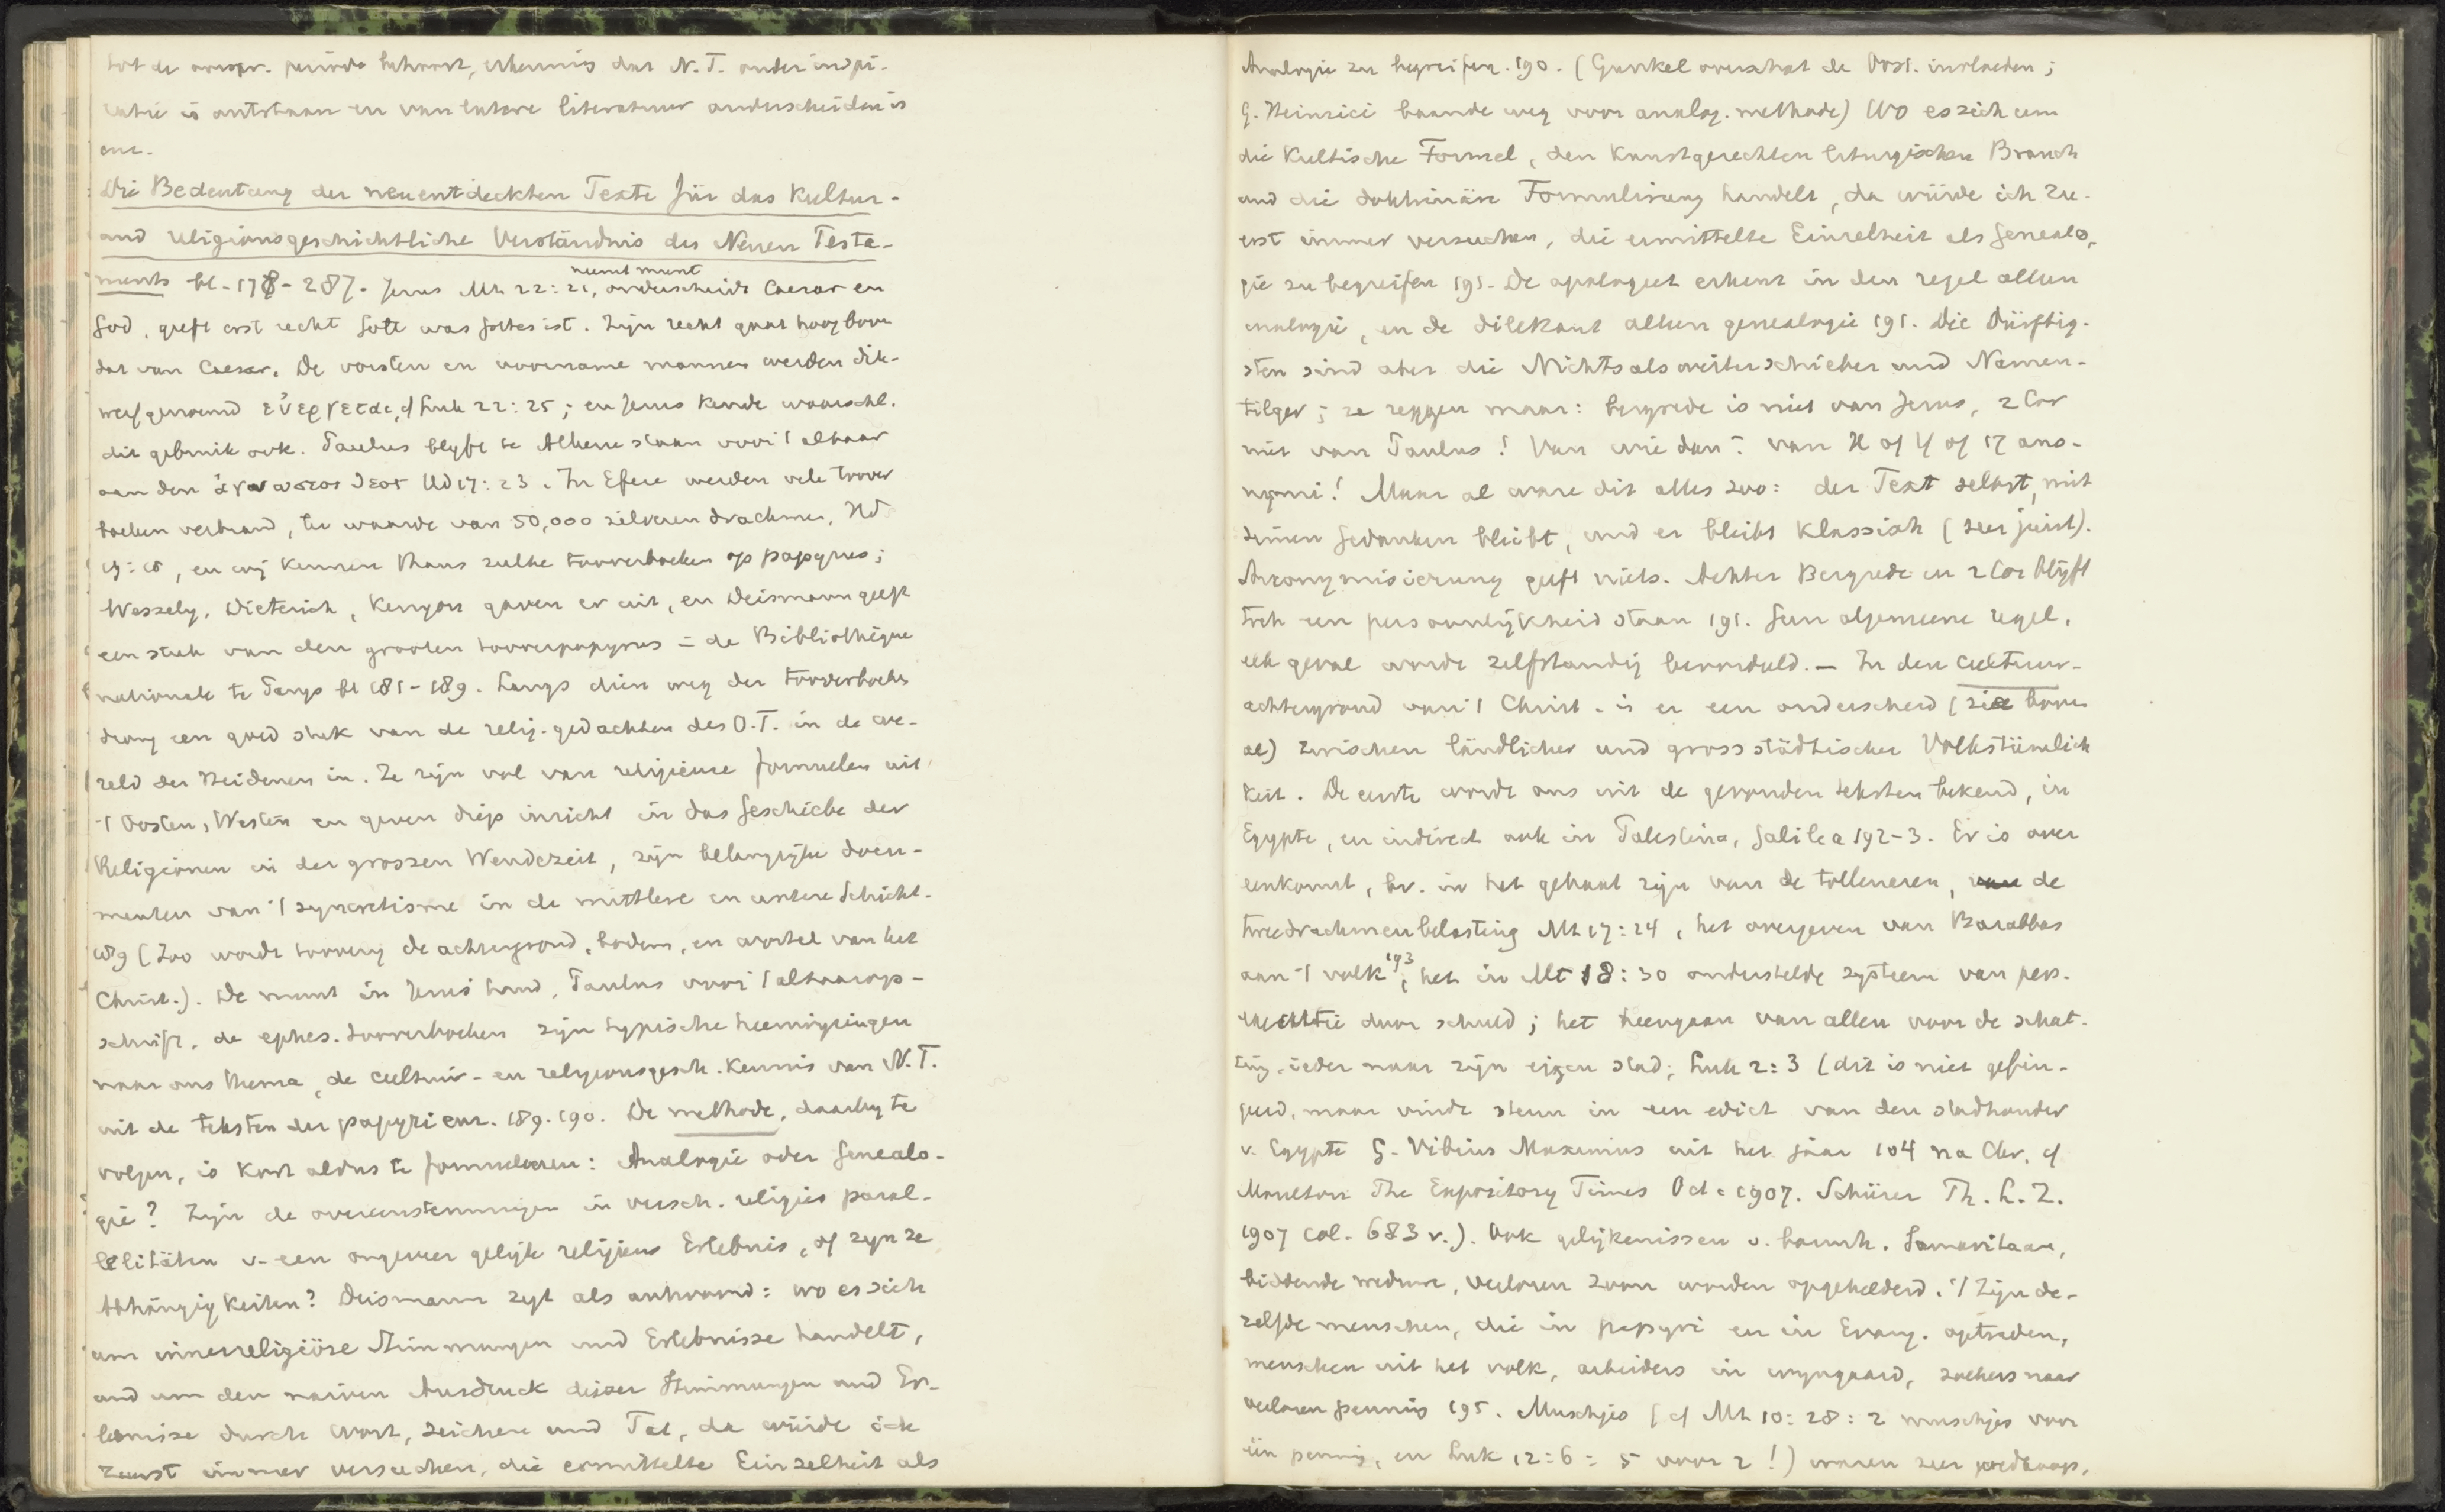 tot de oorspr. periode behoort, erkennis dat N.T. onder inspi-
ratie is ontstaan en van latere literatuur onderscheiden is
enz.
Die Bedeutung der neuentdeckten Texte für das Kultur-
und religionsgeschichtliche Verständnis des Neuen Testa-
ments bl. 178-287. Jezus Mt 22:21, neemt munt onderscheidt Caesar en
God, geeft erst recht Gott was Gottes ist. Zijn recht gaat hoog boven
dat van Caesar. De vorsten en voorname mannen werden dik-
werf genoemd εὐεργεται, cf Luk 22:25; en Jezus kende waarschl.
dit gebruik ook. Paulus blijft te Athene staan voor 't altaar
aan den ἀγνωστος θεος Hd 17:23. In Efese werden vele toover
boeken verbrand, ter waarde van 50,000 zilveren drachmen, Hd
19:19, en wij kennen thans zulke tooverboeken op papyrus;
Wessely, Dieterich, Kenyon gaven er uit, en Deismann geeft
een stuk van den grooten tooverpapyrus in de Bibliothèque
nationale te Parys bl 181-189. Langs dien weg der tooverboeken
drong een goed stuk van de relig. gedachten des O.T. in de we-
reld der Heidenen in. Ze zijn vol van religieuse formules uit
't Oosten, Westen en geven diep inzicht in das Geschiebe der
Religionen in der grossen Wendezeit, zijn belangrijke docu-
menten van 't syncretisme in de mittlere en untere Schicht.
189 (Zoo wordt toovery de achtergrond, bodem, en wortel van het
Christ.). De munt in Jezus' hand, Paulus voor 't altaarop-
schrift, de ephes. tooverboeken zijn typische heenwijzingen
naar ons thema, de cultuur- en religionsgesch. kennis van N.T.
uit de teksten der papyri enz. 189. 190. De methode, daarby te
volgen, is kort aldus te formuleeren: Analogie oder Genealo-
gie? Zijn de overeenstemmingen in versch. religies paral-
lelitäten v. een ongeveer gelijk religieus Erlebnis, of zyn ze
Abhängigkeiten? Deismann zegt als antwoord: wo es sich
um innerreligiöse Stimmungen und Erlebnisse handelt,
und um den naiven Ausdruck dieser Stimmungen und Er-
lebnisse durch Wort, Zeichen und Tat, da würde ich
zuerst immer versuchen, die ermittelte Einzelheit als
Analogie zu begreifen. 190. (Gunkel overschat de Oost. invloeden;
G. Heinrici baande weg voor analog. methode) Wo es sich um
die Kultische Formel, den Kunstgerechten liturgischen Brauch
und die doktrinäre Formulierung handelt, da würde ich zu-
erst immer versuchen, die ermittelte Einzelheit als Genealo-
gie zu begreifen 191. De apologeet erkent in den regel alleen
analogie, en de dilettant alleen genealogie 191. Die Dürftig-
sten sind aber die Nichtsalsweiterschieber und Namen-
tilger; ze zeggen maar: bergrede is niet van Jezus, 2 Cor
niet van Paulus! Van wie dan? van X of Y of 17 ano-
nymi! Maar al ware dit alles zoo: der Text selbst, mit
seinen Gedanken bleibt, und er bleibt klassisch (zeer juist).
Anonymisierung geeft niets. Achter Bergrede en 2 Cor blijft
toch een persoonlijkheid staan 191. Geen algemeene regel,
elk geval worde zelfstandig beoordeeld. — In den cultuur-
achtergrond van 't Christ. is er een onderscheid (zie boven
al) zwischen ländlicher und grossstädtischer Volkstümlich
keit. De eerste wordt ons uit de gevonden teksten bekend, in
Egypte, en indirect ook in Palestina, Galilea 192-3. Er is over
eenkomst, bv. in het gehaat zijn van de tollenaren, de
tweedrachmenbelasting Mt 17:24, het overgeven van Barabbas
aan 't volk 193; het in Mt 18:30 onderstelde systeem van pers.
executie door schuld; het heengaan van allen voor de schat-
ting, ieder naar zijn eigen stad; Luk 2:3 (dit is niet gefin-
geerd, maar vindt steun in een edict van den stadhouder
v. Egypte G. Vibius Maximus uit het jaar 104 na Chr. cf
Moulton The Expository Times Oct. 1907. Schürer Th. L. Z.
1907 col. 683 v.). Ook gelijkenissen v. barmh. Samaritaan,
biddende weduwe, verloren zoon worden opgehelderd. 't Zijn de-
zelfde menschen, die in papyri en in Evang. optreden,
menschen uit het volk, arbeiders in wijngaard, zoekers naar
verloren penning 195. Muschjes (cf Mt 10:28: 2 muschjes voor
één penning, en Luk 12:6: 5 voor 2!) waren zeer goedkoop,